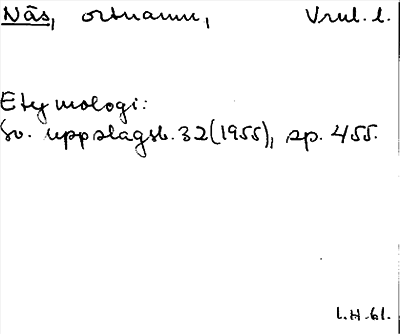 Näs, ortnamn, Vrml. l.
Etymologi:
Sv. uppslagsb. 32 (1955), sp. 455.
L.H-61.